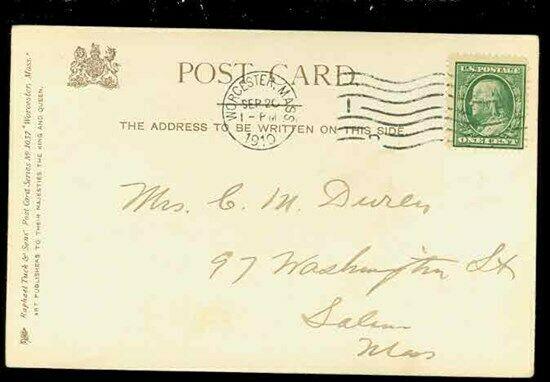 POST CARD.
WORCESTER, MASS.
SEP 26
1 - PM
1910
U.S. POSTAGE
ONE CENT
THE ADDRESS TO BE WRITTEN ON THIS SIDE
Mrs. C. M. Duren
97 Washington St
Salem
Mass
Raphael Tuck & Sons' Post Card Series No 1037 "Worcester, Mass."
ART PUBLISHERS TO THEIR MAJESTIES THE KING AND QUEEN.